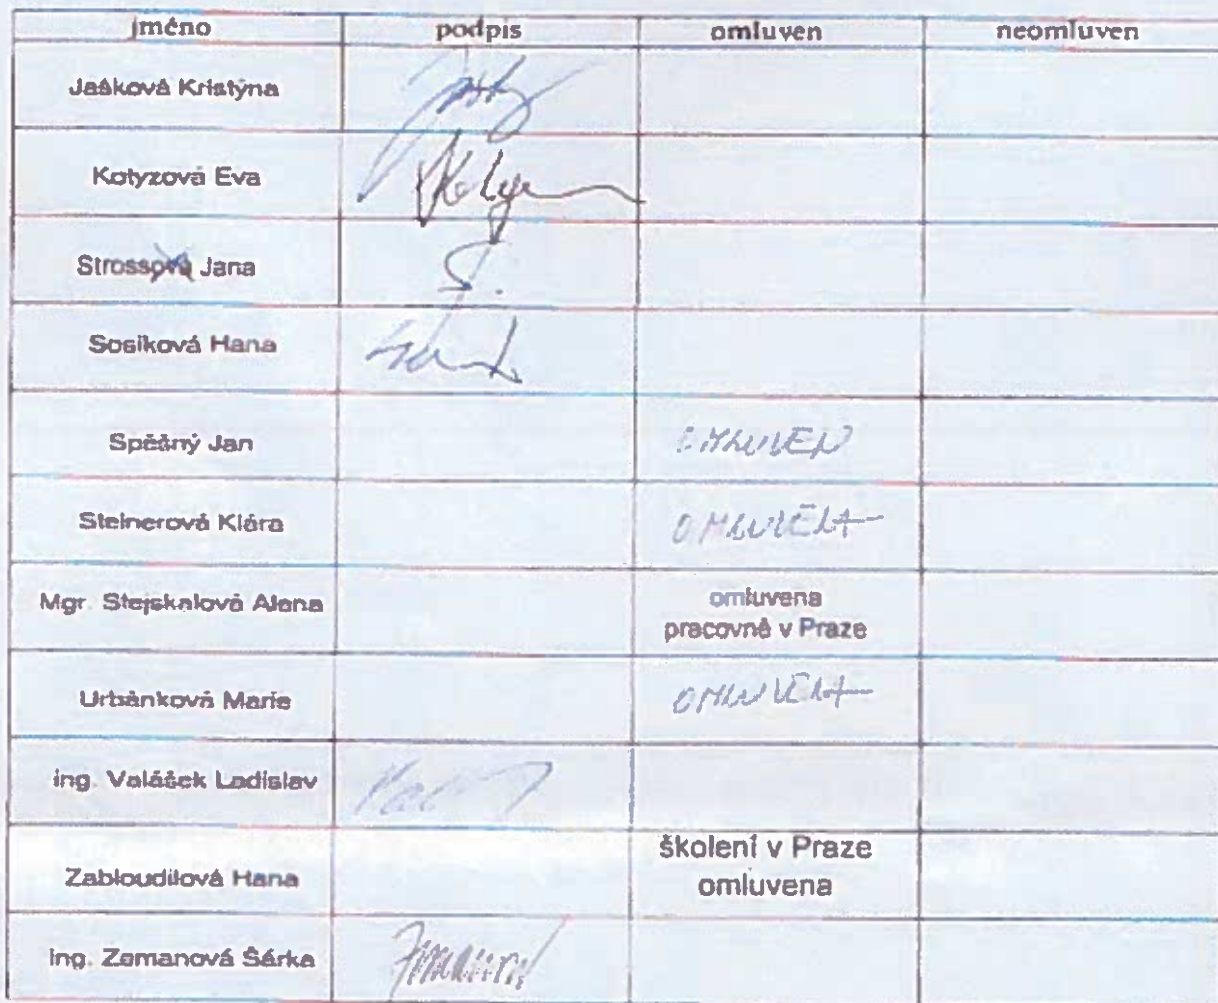 jméno podpis omluven neomluven
Jašková Kristýna
Kotyzová Eva
Strossová Jana S.
Sosíková Hana
Spěšný Jan OMLUVEN
Steinerová Klára OMLUVENA
Mgr. Stejskalová Alena omluvena
pracovně v Praze
Urbánková Marie OMLUVENA
ing. Valášek Ladislav
Zabloudilová Hana školení v Praze
omluvena
ing. Zemanová Šárka